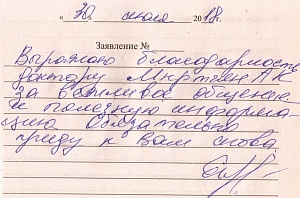 « 30 июля 2018 г.
Заявление №
Выражаю благодарность
доктору Мкртчян А К
за вежливое общение
и полезную информа-
цию Обязательно
приду к Вам снова.